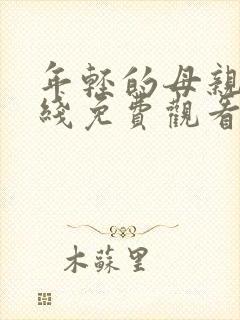 年轻的母親
綫免費觀看
木蘇里